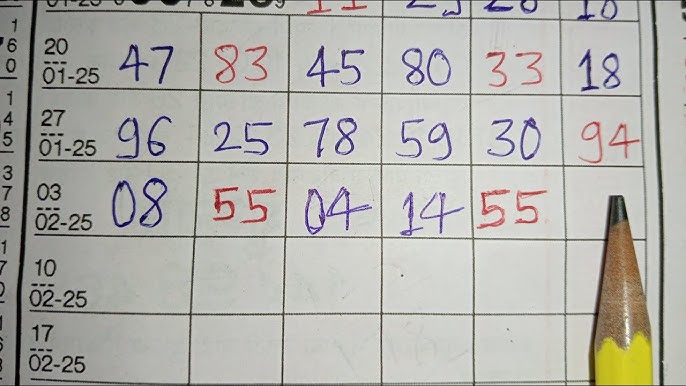 20
01-25 47 83 45 80 33 18
27
01-25 96 25 78 59 30 94
03
02-25 08 55 04 14 55
10
02-25
17
02-25